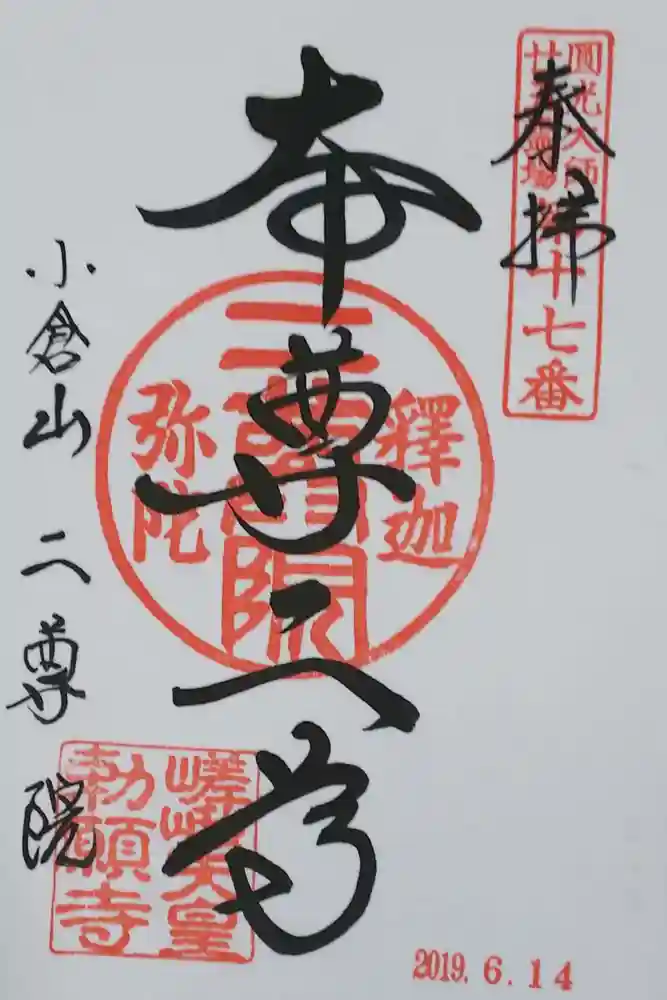 奉拝
圓光大師
廿五霊場
第十七番
本尊二尊
釋迦
二尊院
弥陀
小倉山 二尊院
嵯峨天皇
勅願寺
2019. 6. 14